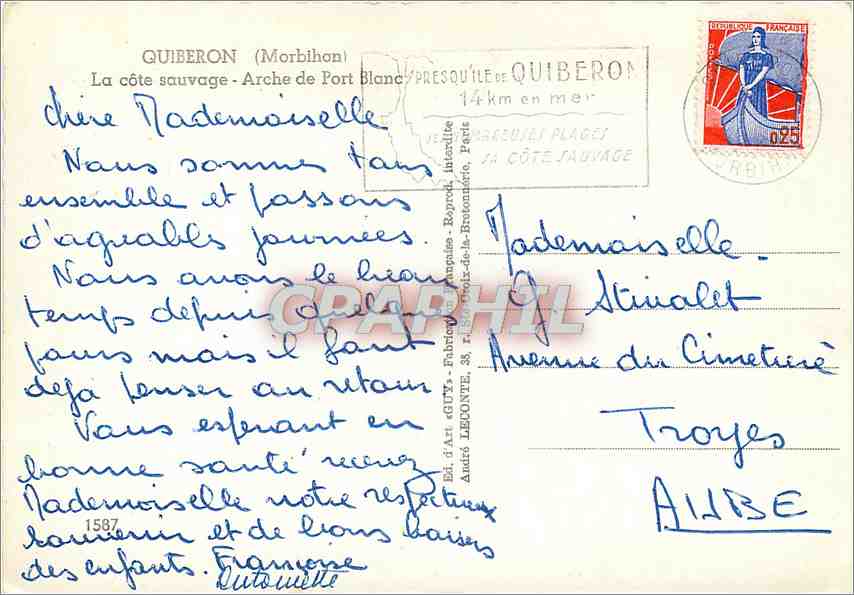 QUIBERON (Morbihan)
La côte sauvage - Arche de Port Blanc
PRESQU'ÎLE DE QUIBERON
14 km en mer
PLAGES
SA CÔTE SAUVAGE
REPUBLIQUE FRANÇAISE
0,25
Chère Mademoiselle
Nous sommes tous
ensemble et passons
d'agréables journées.
Nous avons le beau
temps depuis quelques
jours mais il faut
déjà penser au retour
Vous espérant en
bonne santé recevez
Mademoiselle notre respectueux
souvenir et de bons baisers
des enfants. Françoise
Antoinette
1587
Ed. d'Art «GUY» - Fabrication Française - Reprod. interdite
André LECONTE, 38, r. Ste-Croix-de-la-Bretonnerie, Paris
Mademoiselle
G. Stivalet
Avenue du Cimetière
Troyes
AUBE
CPARPHIL